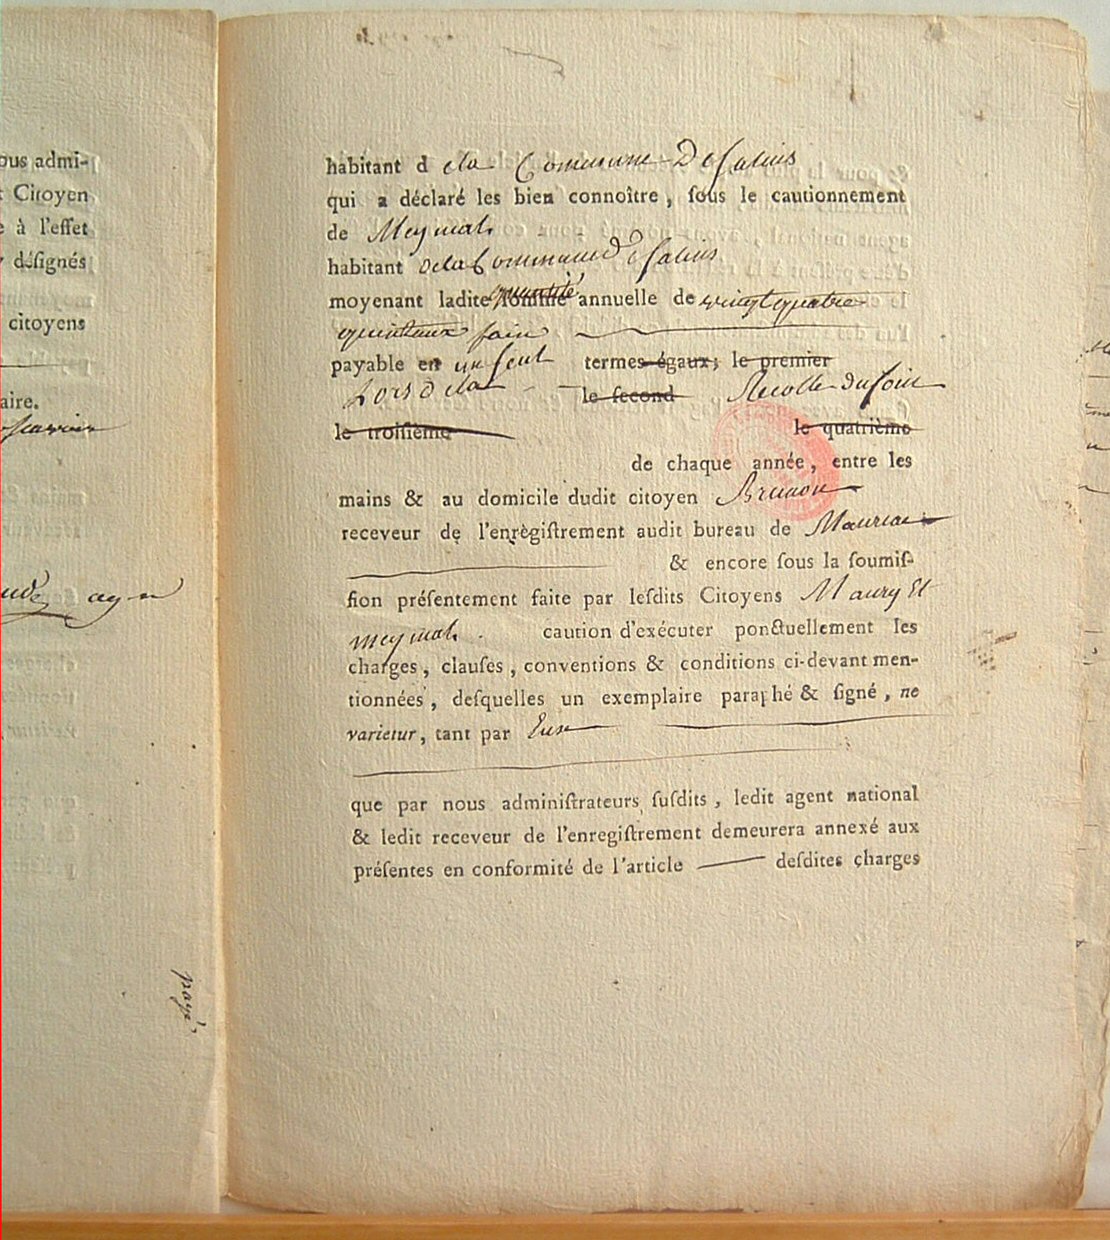 ous admi-
Citoyen
e à l'effet
désignés
citoyens
aire.
payé
habitant d ela Commune De Salins
qui a déclaré les bien connoître, ſous le cautionnement
de Meymal
habitant dela Commune De Salins
moyenant ladite ſomme quantité annuelle de vingt quatre
quintaux foin
payable en un ſeul termes égaux; le premier
Lors dela le ſecond Recolte du foin
le troiſième le quatrième
de chaque année, entre les
mains & au domicile dudit citoyen Brunon
receveur de l'enrègiſtrement audit bureau de Mauriac
& encore ſous la ſoumiſ-
ſion préſentement faite par leſdits Citoyens Maury Et
meymal caution d'exécuter ponctuellement les
charges, clauſes, conventions & conditions ci-devant men-
tionnées, deſquelles un exemplaire paraphé & ſigné, ne
varietur, tant par Eux
que par nous adminiſtrateurs ſuſdits, ledit agent national
& ledit receveur de l'enregiſtrement demeurera annexé aux
préſentes en conformité de l'article deſdites charges